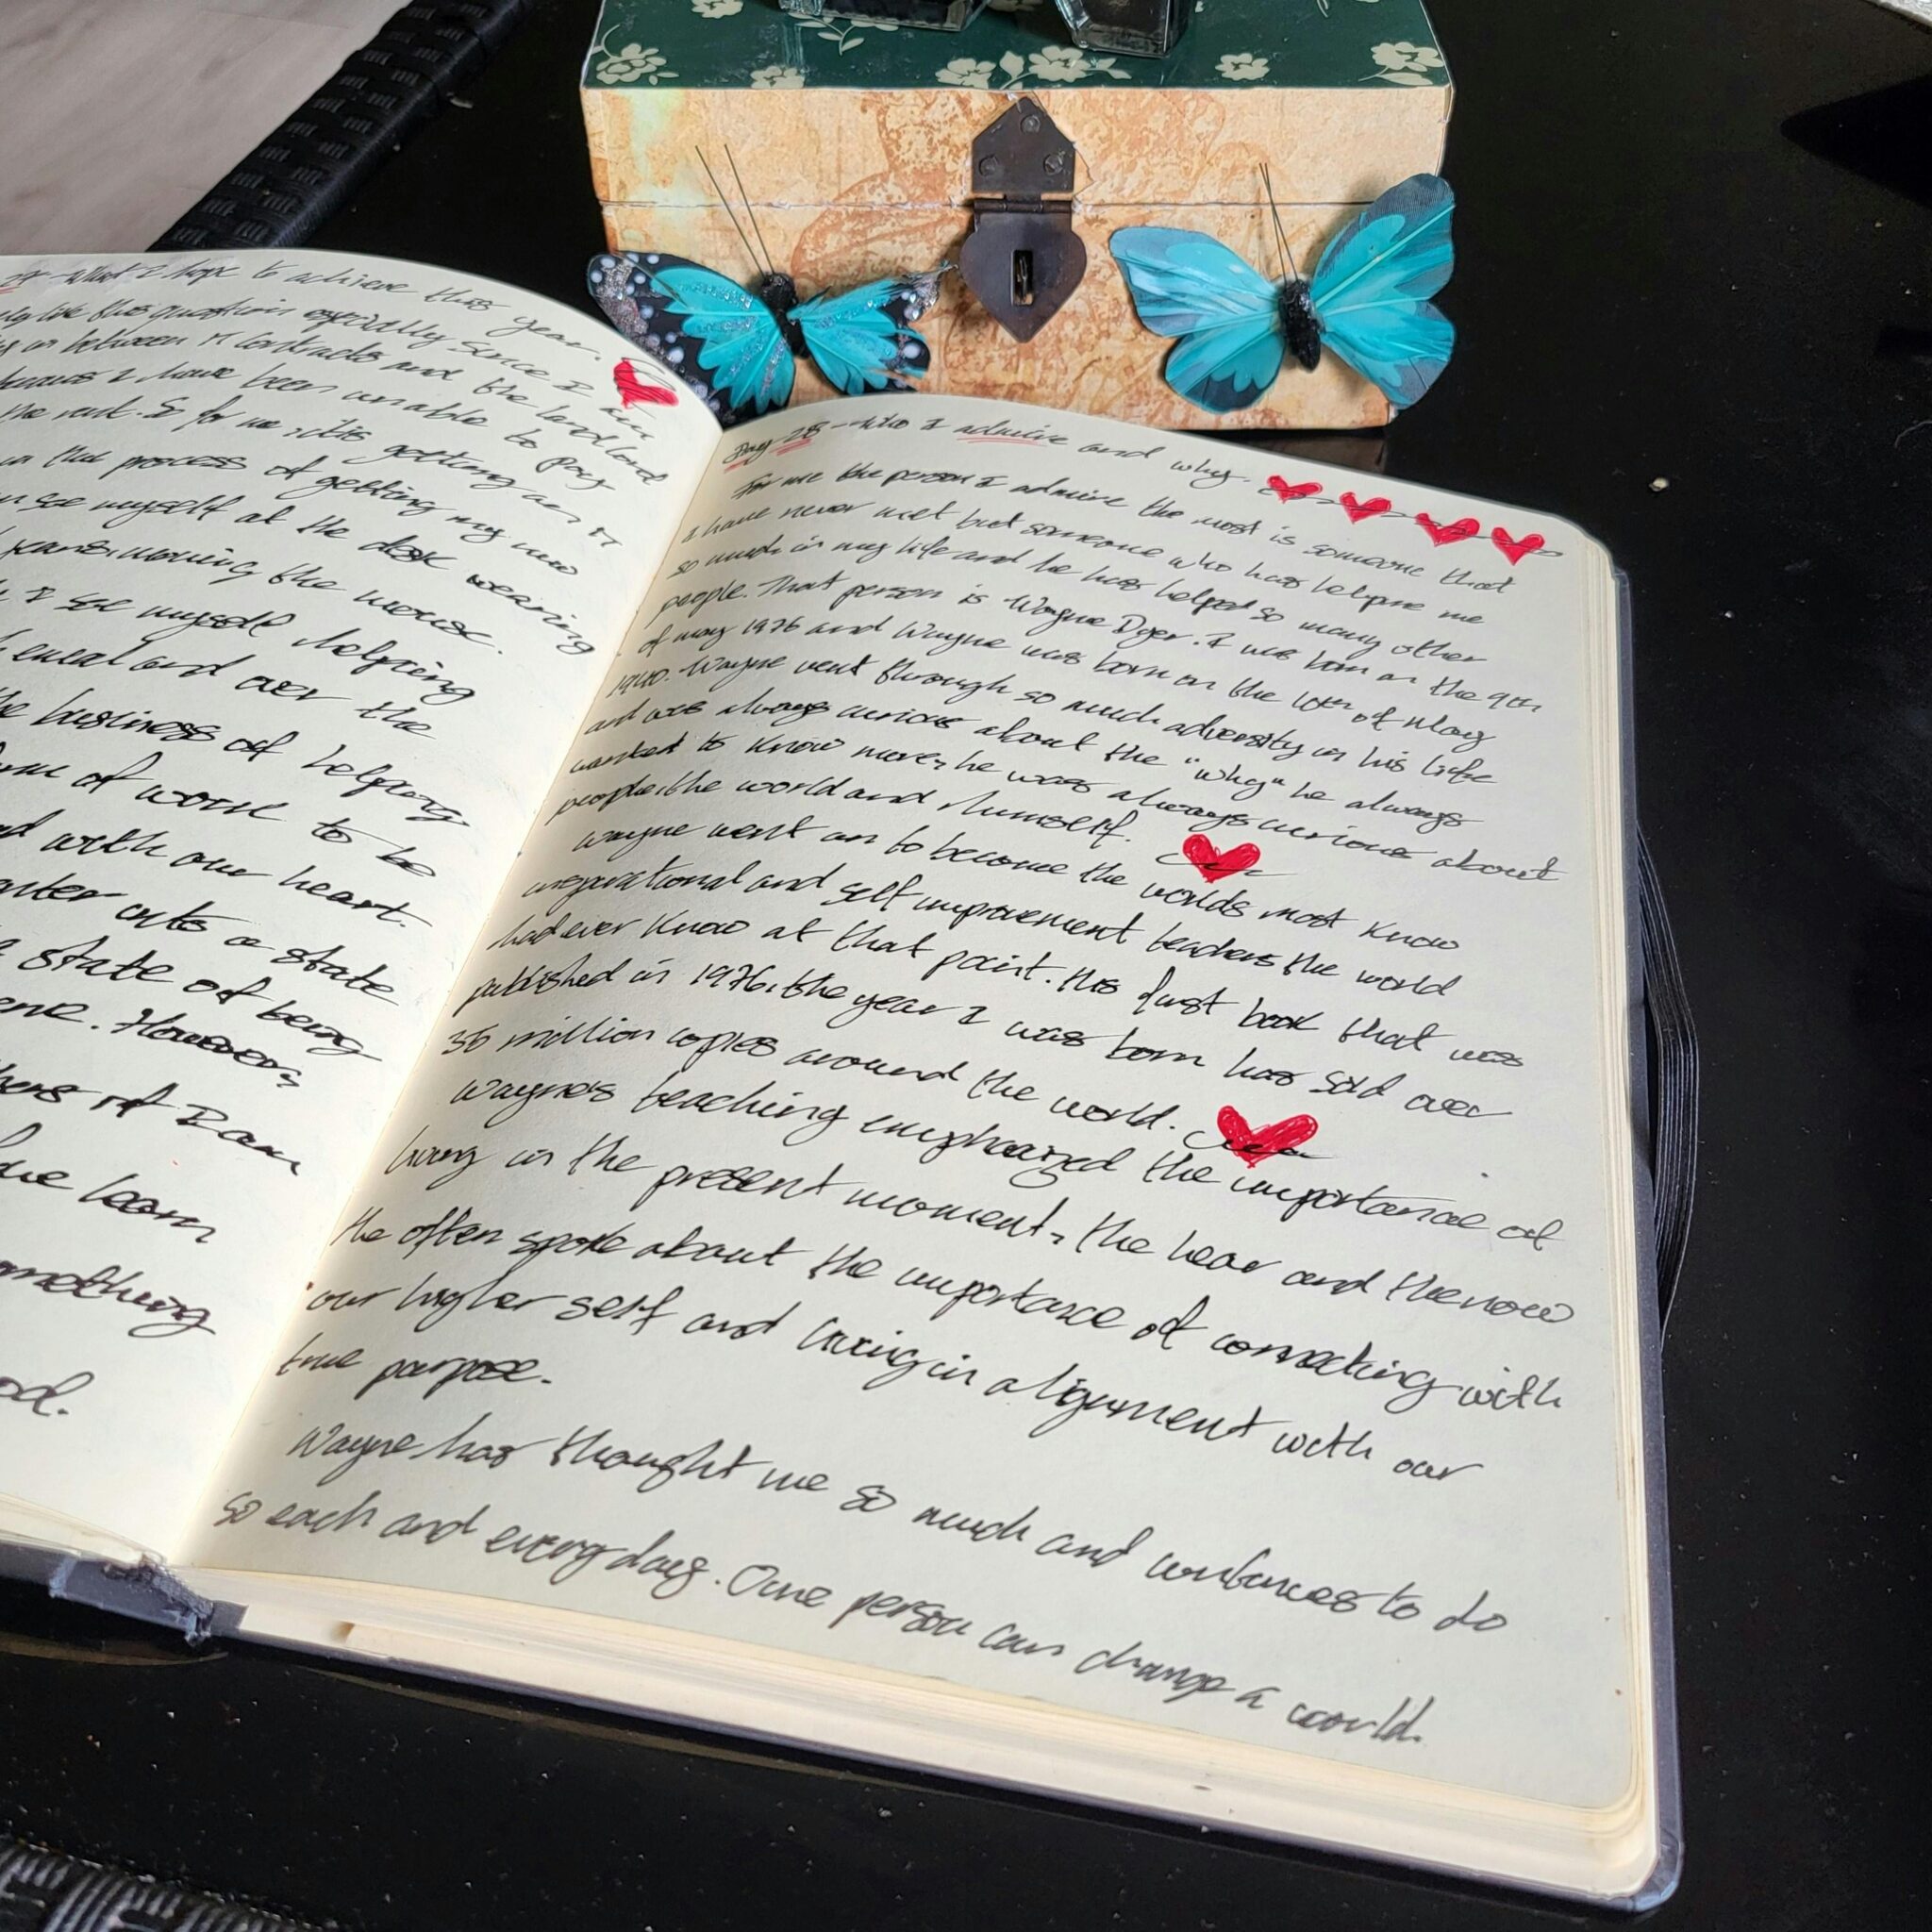 What I hope to achieve this year.
like this question especially since I am
in between IT Contracts and the landlord
I have been unable to pay
the rent. So for me, it is getting an IT
in the process of getting my new
see myself at the desk wearing
jeans, moving the mouse.
I see myself helping
email and over the
the business of helping
of work to be
with our heart.
enter into a state
state of being
However,
of Ram
learn
something
Day 28 - Who I admire and why.
For me the person I admire the most is someone that
I have never met but someone who has helpme me
so much in my life and he has helped so many other
people. That person is Wayne Dyer. I was born on the 9th
of may 1976 and Wayne was born on the 10th of May
1940. Wayne went through so much adversity in his life
and was always curious about the "why" he always
wanted to know more, he was always curious about
people, the world and himself.
Wayne went on to become the worlds most know
inspirational and self improvement teachers the world
had ever know at that point. His first book that was
published in 1976, the year I was born has sold over
36 million copies around the world.
Waynes teaching emphasized the importance of
living in the present moment, the hear and the now
He often spoke about the importance of connecting with
our higher self and living in alignment with our
true purpose.
Wayne has thought me so much and continues to do
so each and every day. One person can change a world.